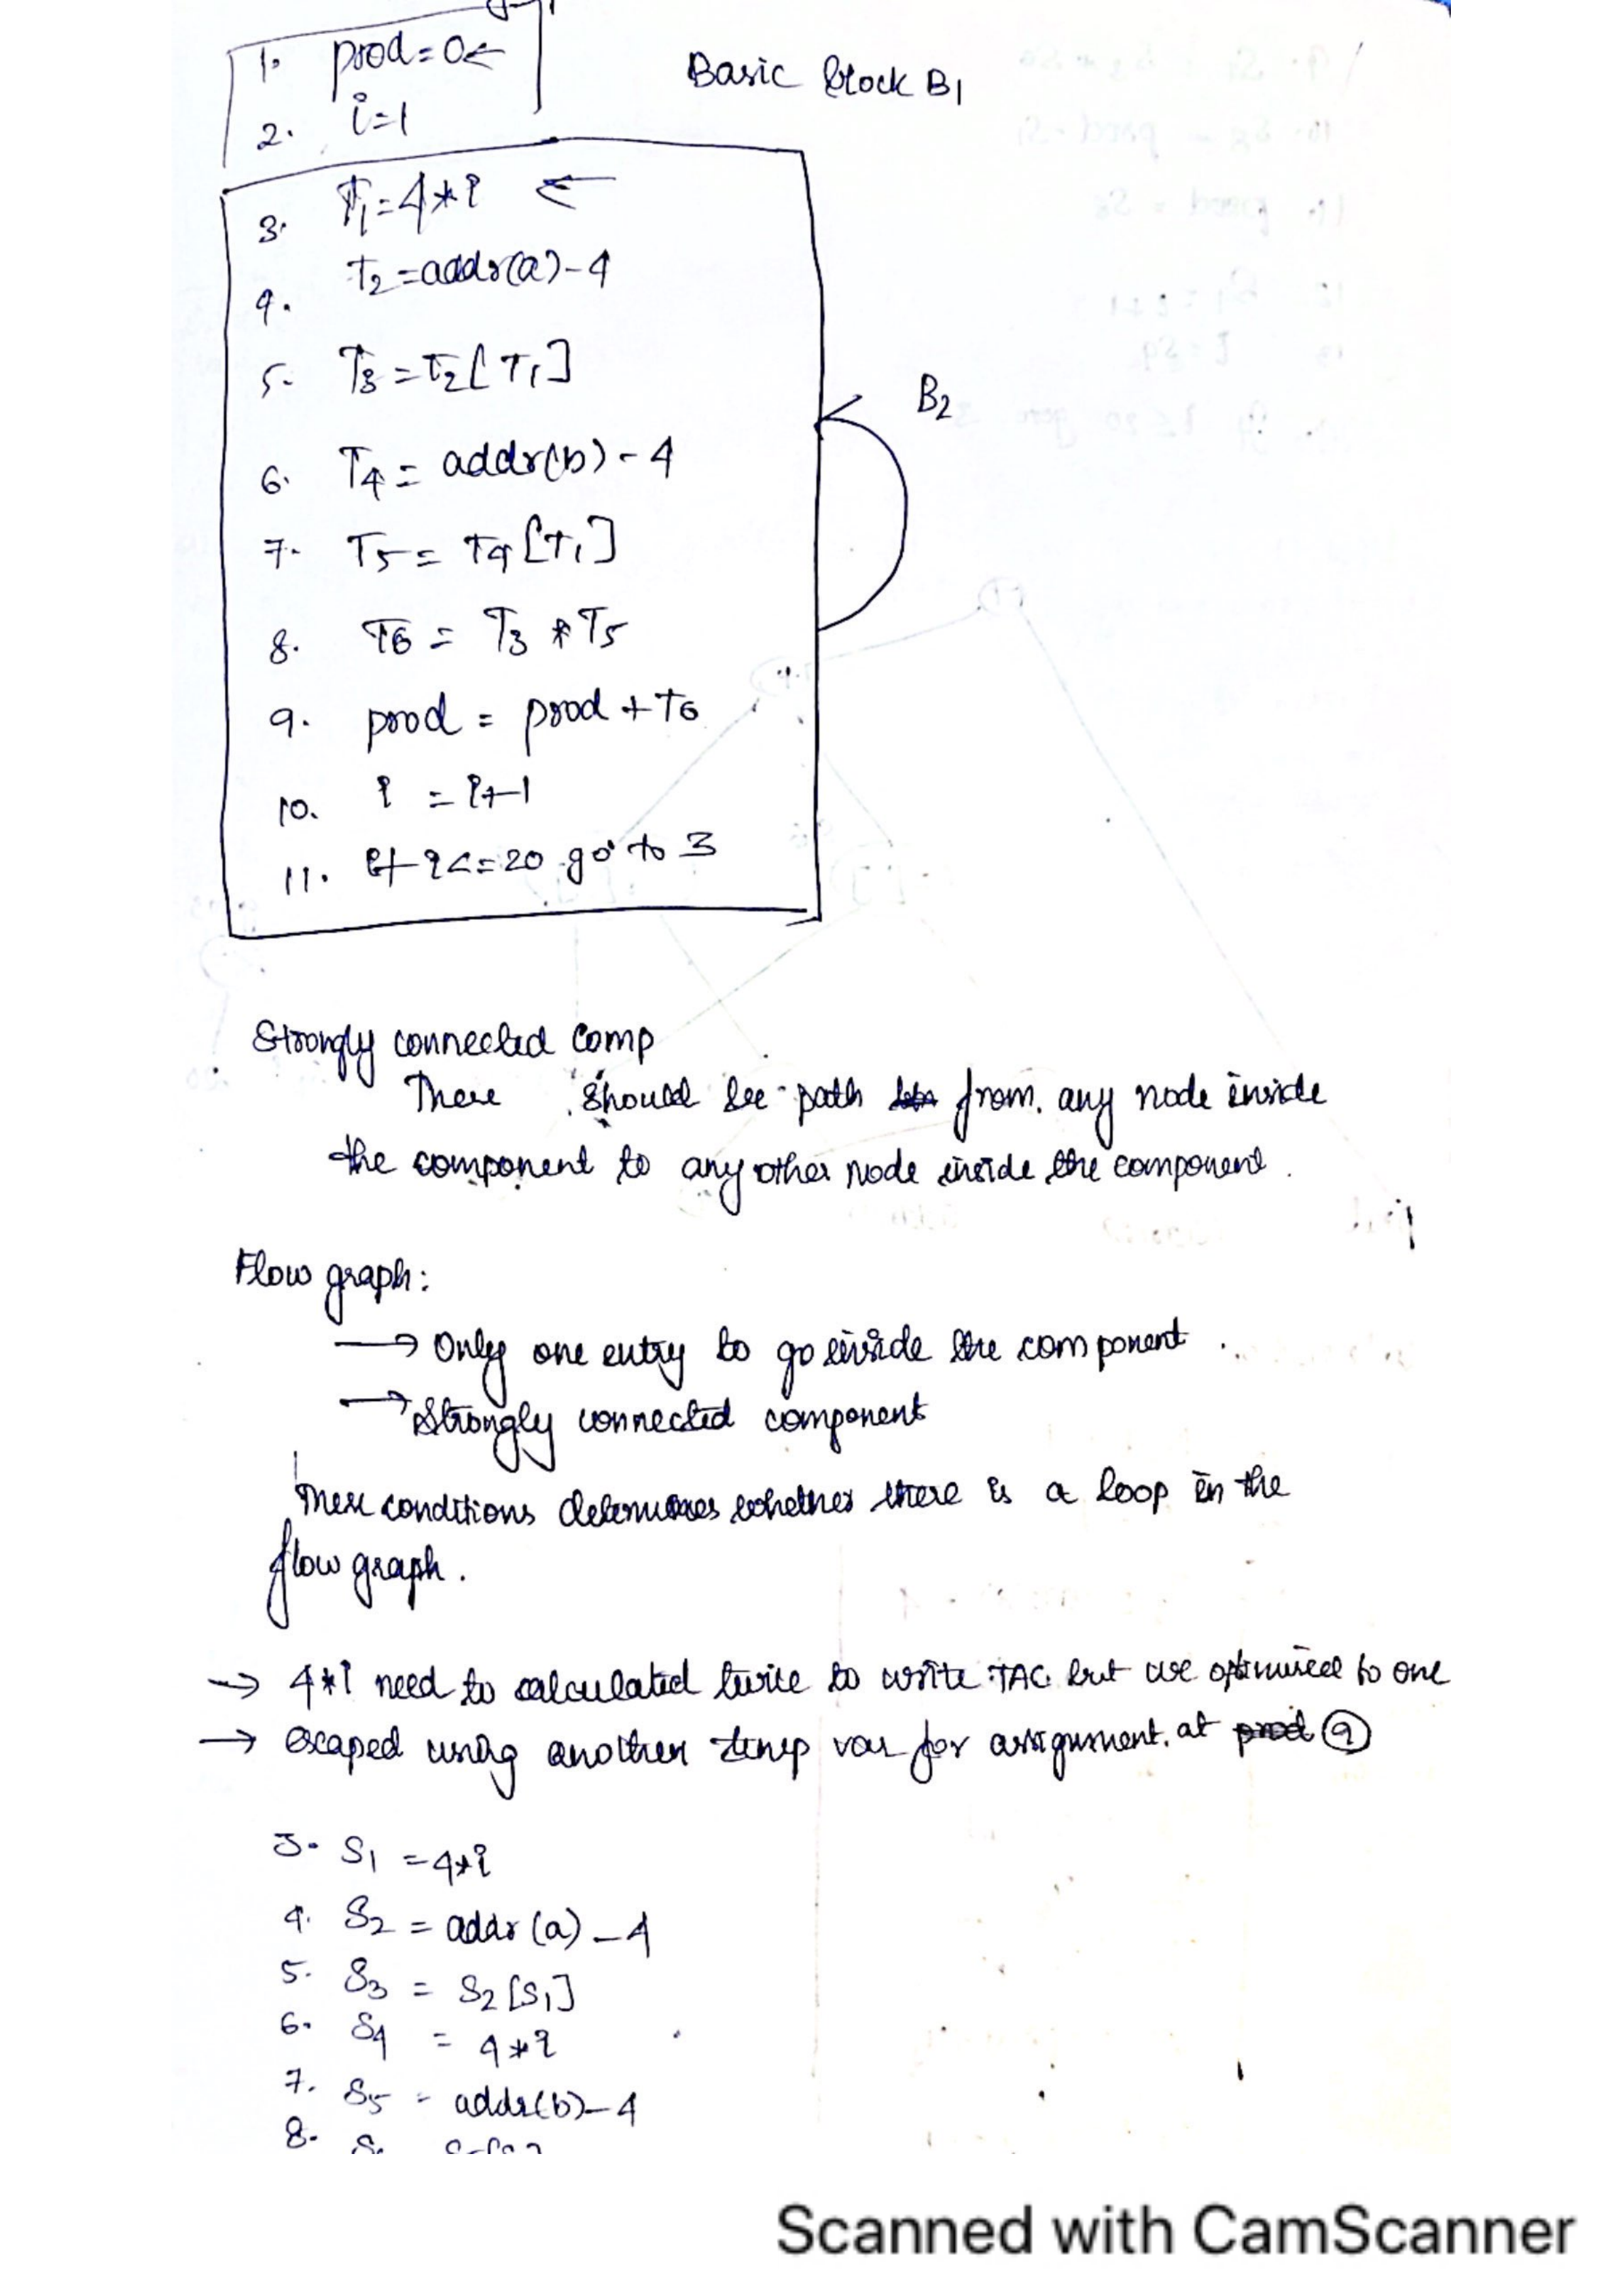 1. prod=0←
Basic block B1
2. i=1
3. T1=4*i ←
4. T2=addr(a)-4
5. T3=T2[T1]
B2
6. T4= addr(b)-4
7. T5= T4[T1]
8. T6 = T3 * T5
9. prod = prod + T6
10. i = i+1
11. if i<=20 go to 3
Strongly connected comp
There should be path from any node inside
the component to any other node inside the component.
Flow graph:
→ Only one entry to go inside the component.
→ Strongly connected component
These conditions determines whether there is a loop in the
flow graph.
→ 4*i need to calculated twice to write TAC but we optimized to one
→ escaped using another temp var for assignment. at prod 9
3. S1 =4*i
4. S2 = addr(a)-4
5. S3 = S2[S1]
6. S4 = 4*i
7. S5 = addr(b)-4
8.
Scanned with CamScanner